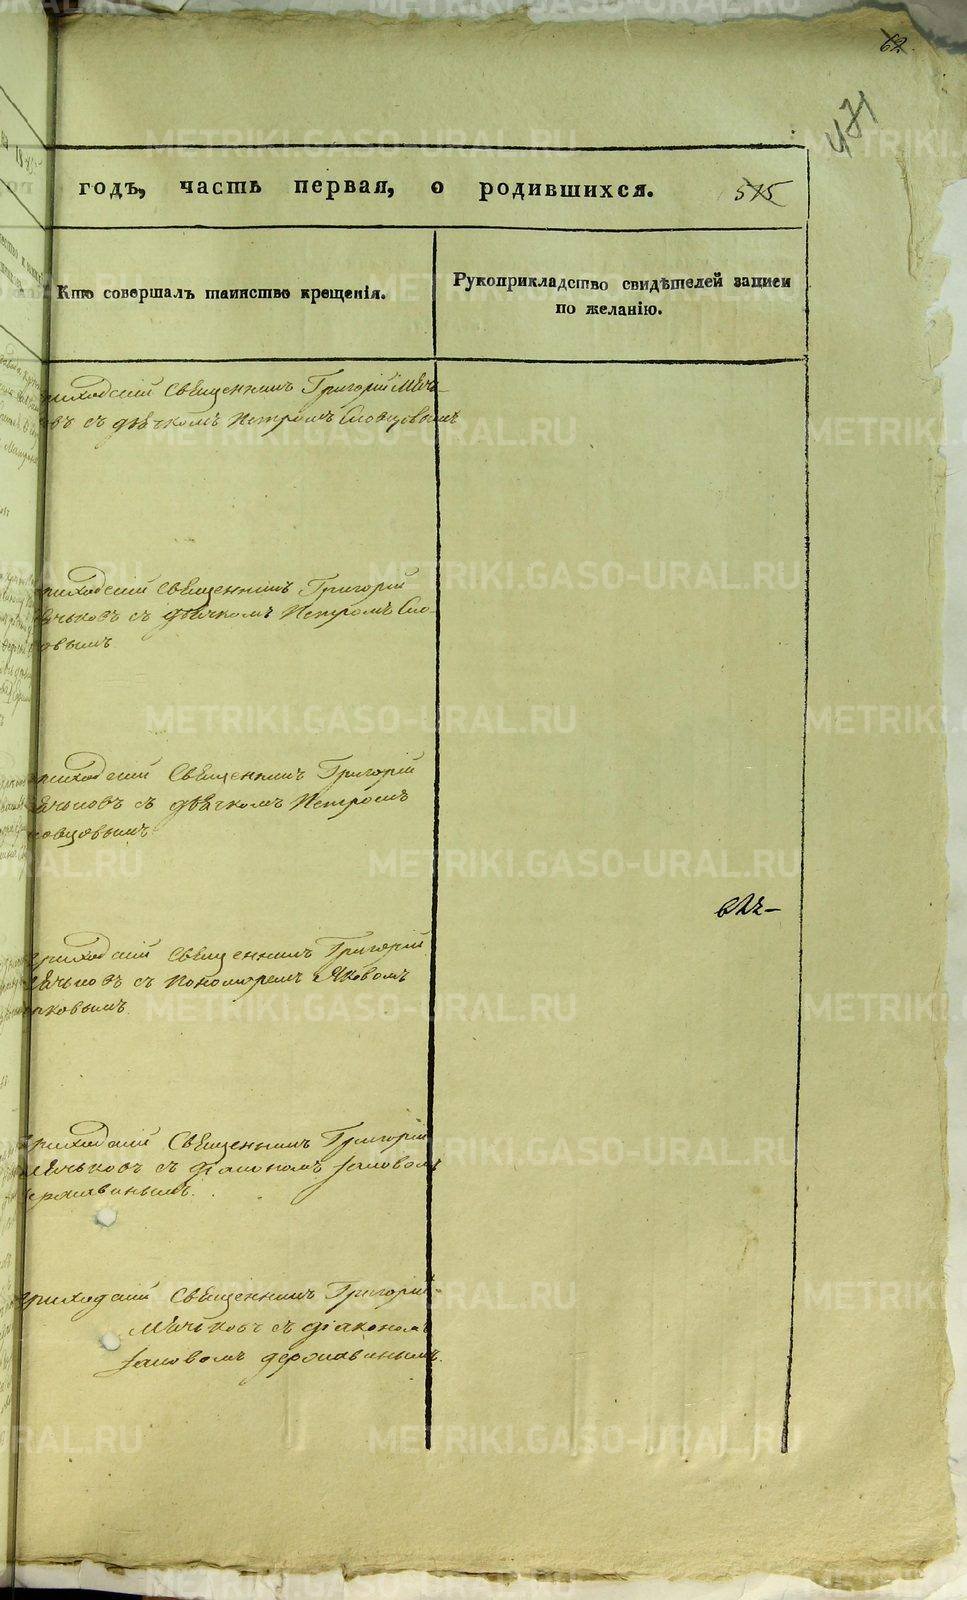 62.
471
годъ, часть первая, о родившихся.
515
Кто совершалъ таинство крещенія.
Рукоприкладство свидѣтелей записи
по желанію.
приходскій Священникъ Григорій Мѣчь-
овъ съ дьячкомъ Петромъ Словцовымъ
приходскій Священникъ Григорій
ѣчьковъ съ дьячкомъ Петромъ Сло-
овымъ
приходскій Священникъ Григорій
ѣчьковъ съ дьячкомъ Петромъ
ловцовымъ
622-
приходскій Священникъ Григорій
Мѣчьковъ съ пономаремъ Яковомъ
ковымъ.
приходскій Священникъ Григорій
Мѣчьковъ съ діакономъ Іаковомъ
ержавинымъ.
приходскій Священникъ Григорій
Мѣчьковъ съ діакономъ
Іаковомъ державинымъ.
METRIKI.GASO-URAL.RU